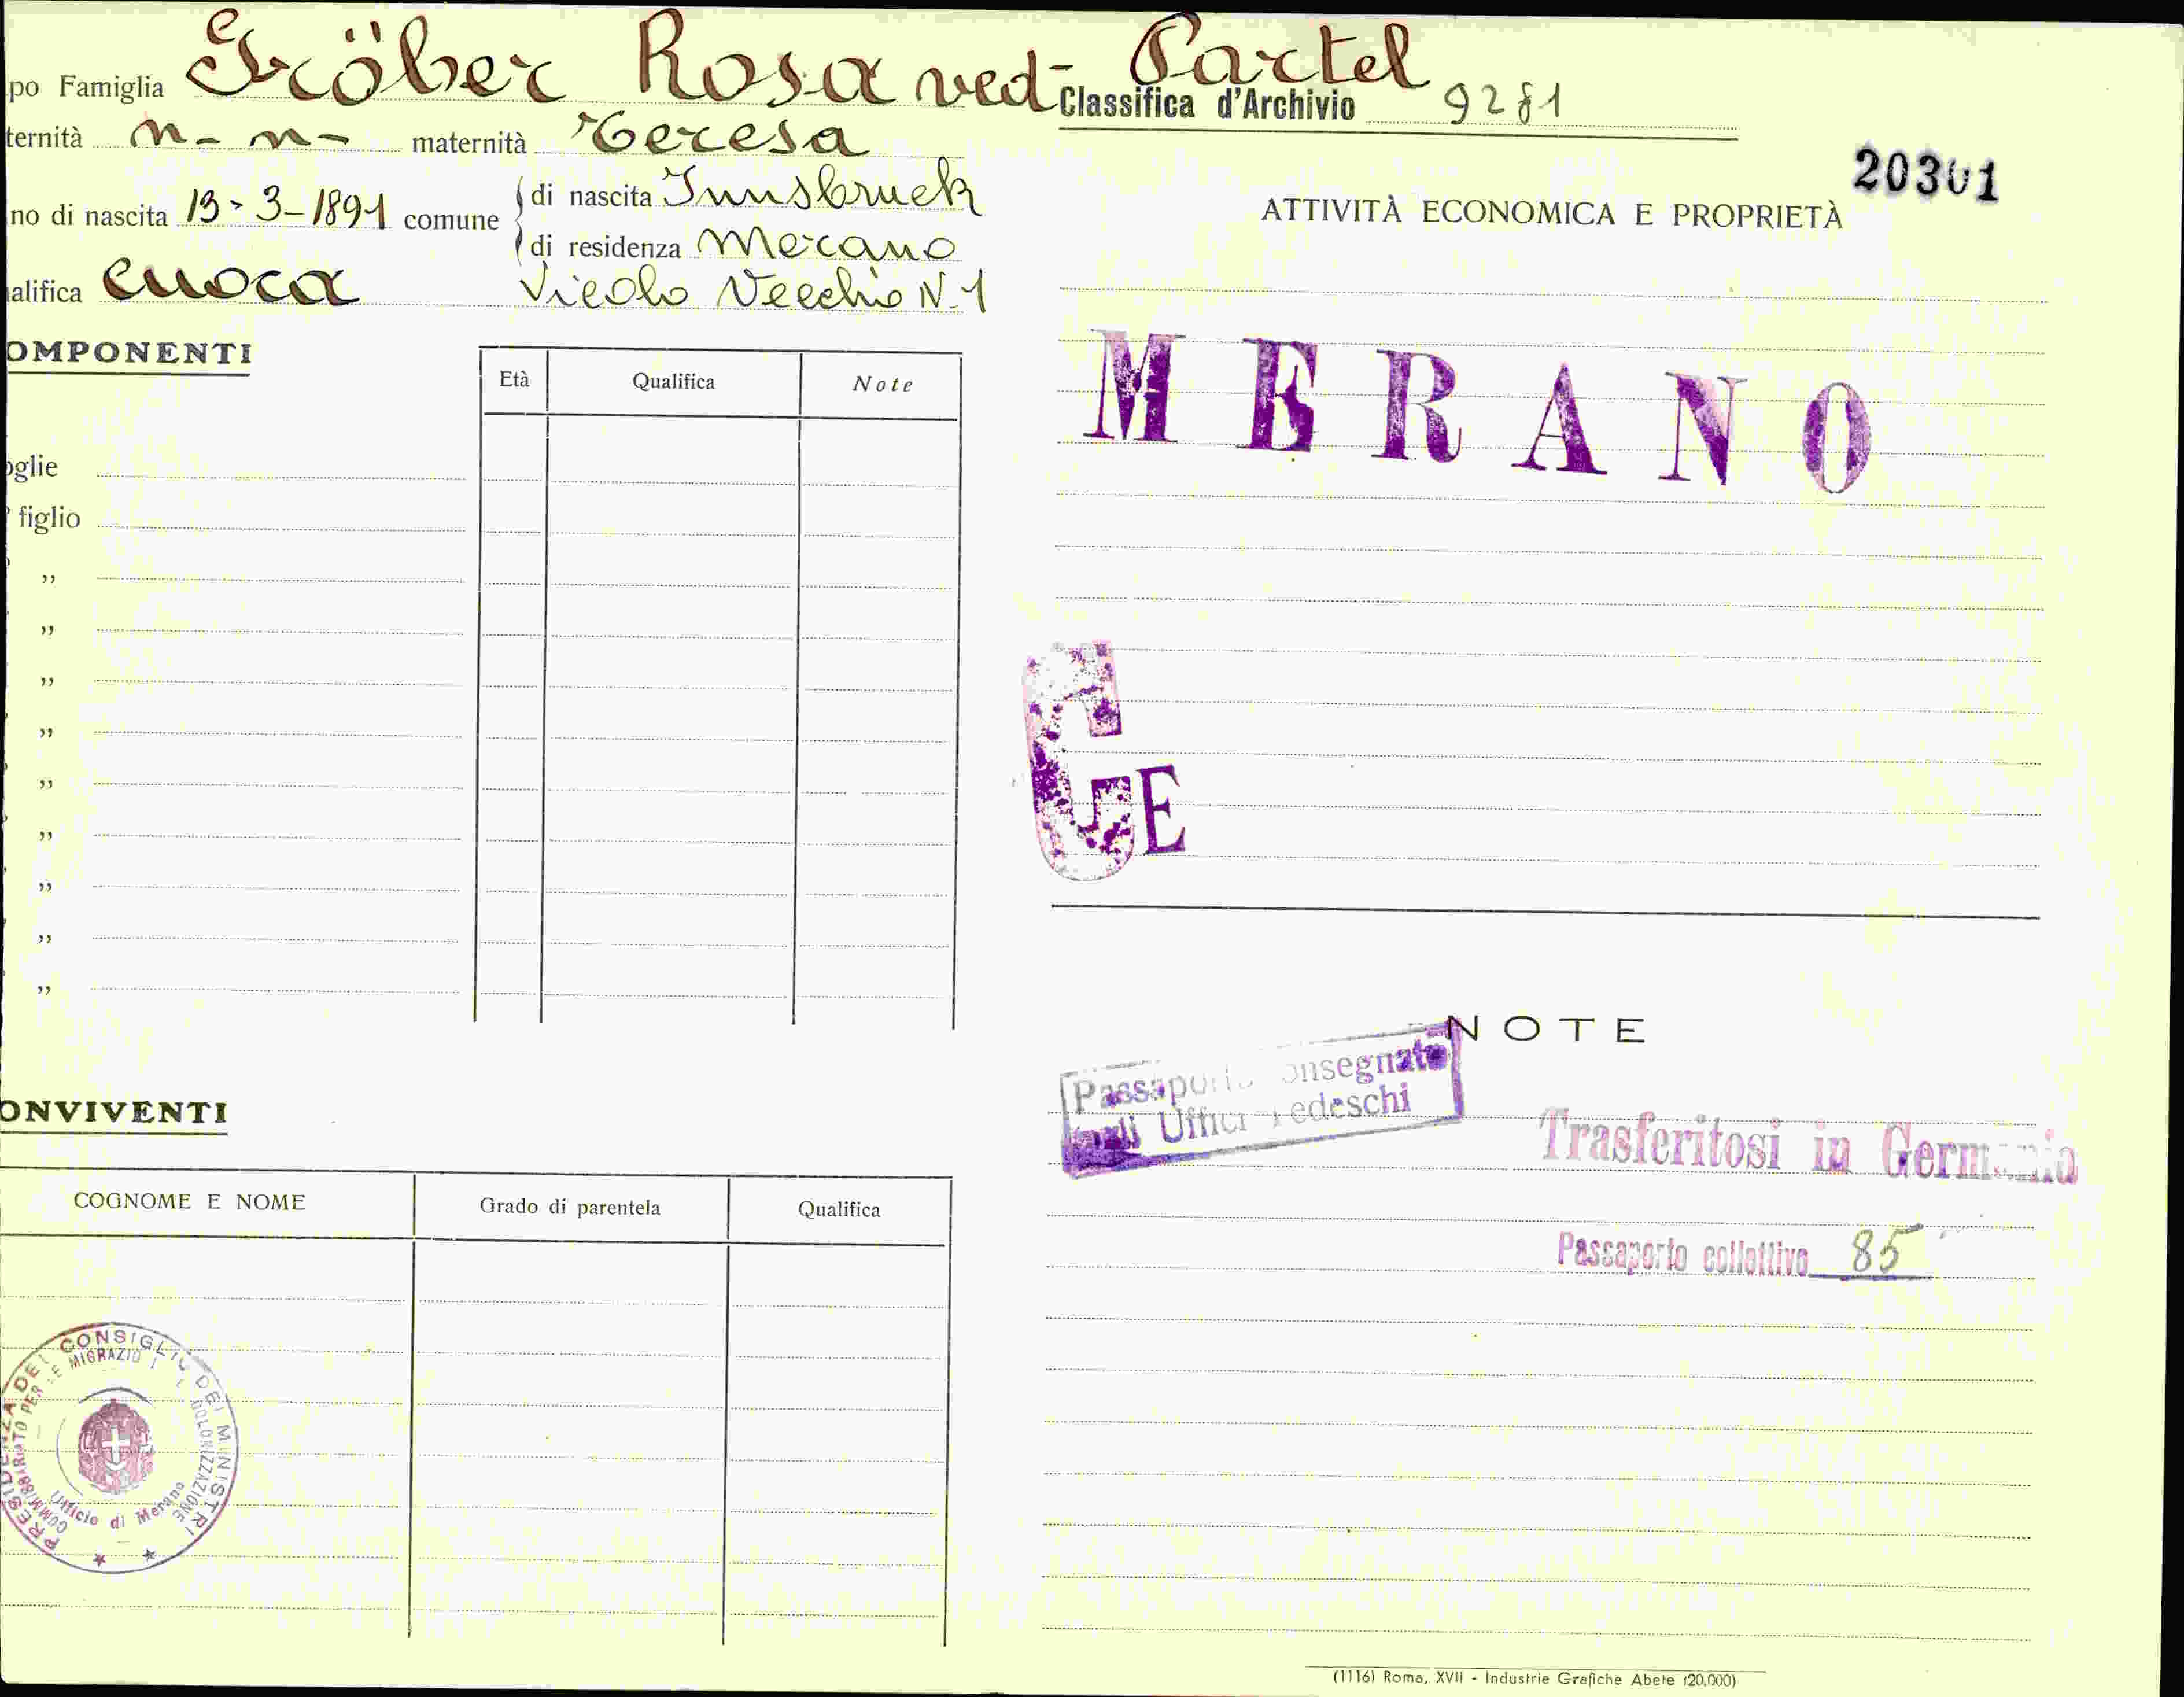 po Famiglia Gröber Rosa ved- Partel
Classifica d'Archivio 9281
ternità n- n- maternità Teresa
20301
no di nascita 13-3-1891 comune di nascita Innsbruck
di residenza Merano
alifica cuoca Vicolo Vecchio N. 1
ATTIVITÀ ECONOMICA E PROPRIETÀ
OMPONENTI
Età Qualifica Note
MERANO
oglie
figlio
"
"
"
"
"
"
"
"
"
G E
NOTE
Passaporto consegnato
dagli Uffici Tedeschi
Trasferitosi in Germania
Passaporto collettivo 85
ONVIVENTI
COGNOME E NOME Grado di parentela Qualifica
PRESIDENZA DEL CONSIGLIO DEI MINISTRI
COMMISSARIATO PER LE MIGRAZIONI E COLONIZZAZIONE
Ufficio di Merano
(1116) Roma, XVII - Industrie Grafiche Abete (20.000)